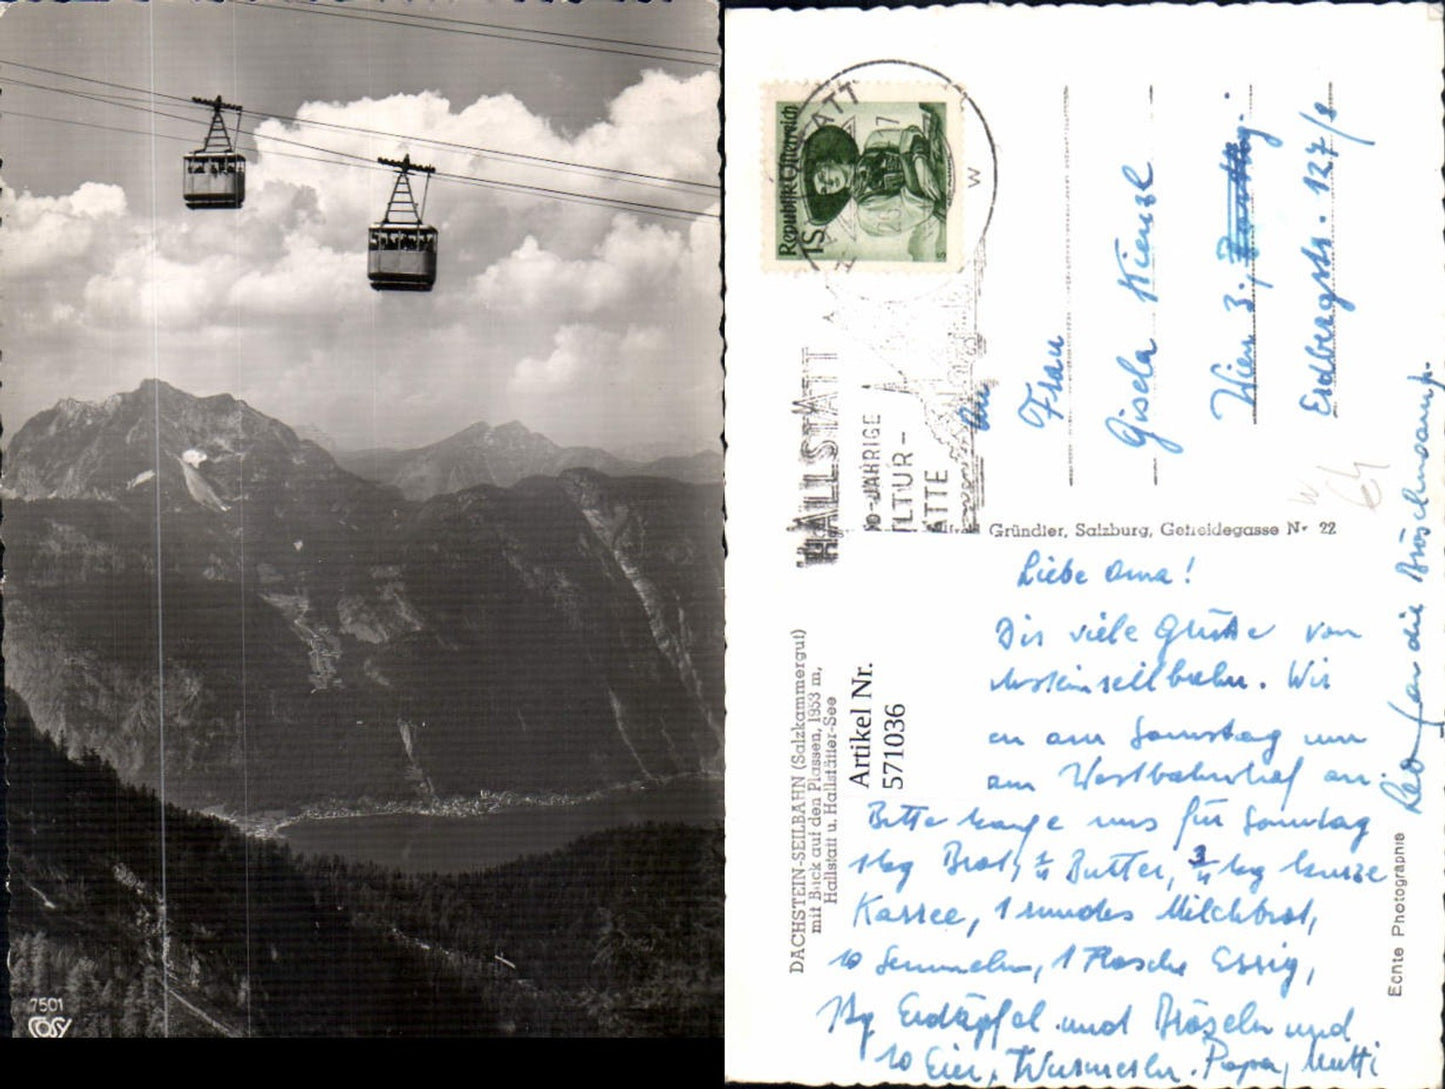 7501
COSY
Republik Österreich
1S
HALLSTATT
JÄHRIGE
An
Frau
Gisela
Wien 3.,
Erdbergstr. 127/
Gründler, Salzburg, Getreidegasse Nr 22
DACHSTEIN-SEILBAHN (Salzkammergut)
mit Blick auf den Plassen, 1953 m,
Hallstatt u. Hallstätter-See
Artikel Nr.
571036
Echte Photographie
Liebe Oma!
Dir viele Grüße von
steinseilbahn. Wir
en am Samstag um
am Westbahnhof an.
Bitte kaufe uns für Sonntag
1 kg Brot, Butter, 3/4 kg
1 rundes Milchbrot,
10 Semmeln, 1 Flasche Essig,
1 kg Erdäpfel und Bröseln und
10 Eier, Papa, Mutti